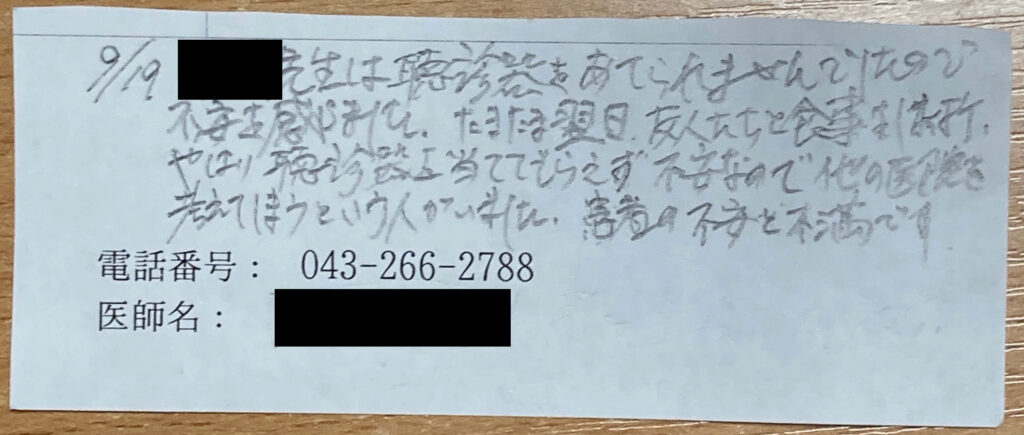 9/19 先生は聴診器をあてられませんでしたので
不安を感じました。たまたま翌日、友人たちと食事をした所、
やはり聴診器を当ててもらえず不安なので他の医院を
考えてしまうという人がいました。患者の不安と不満です
電話番号： 043-266-2788
医師名：